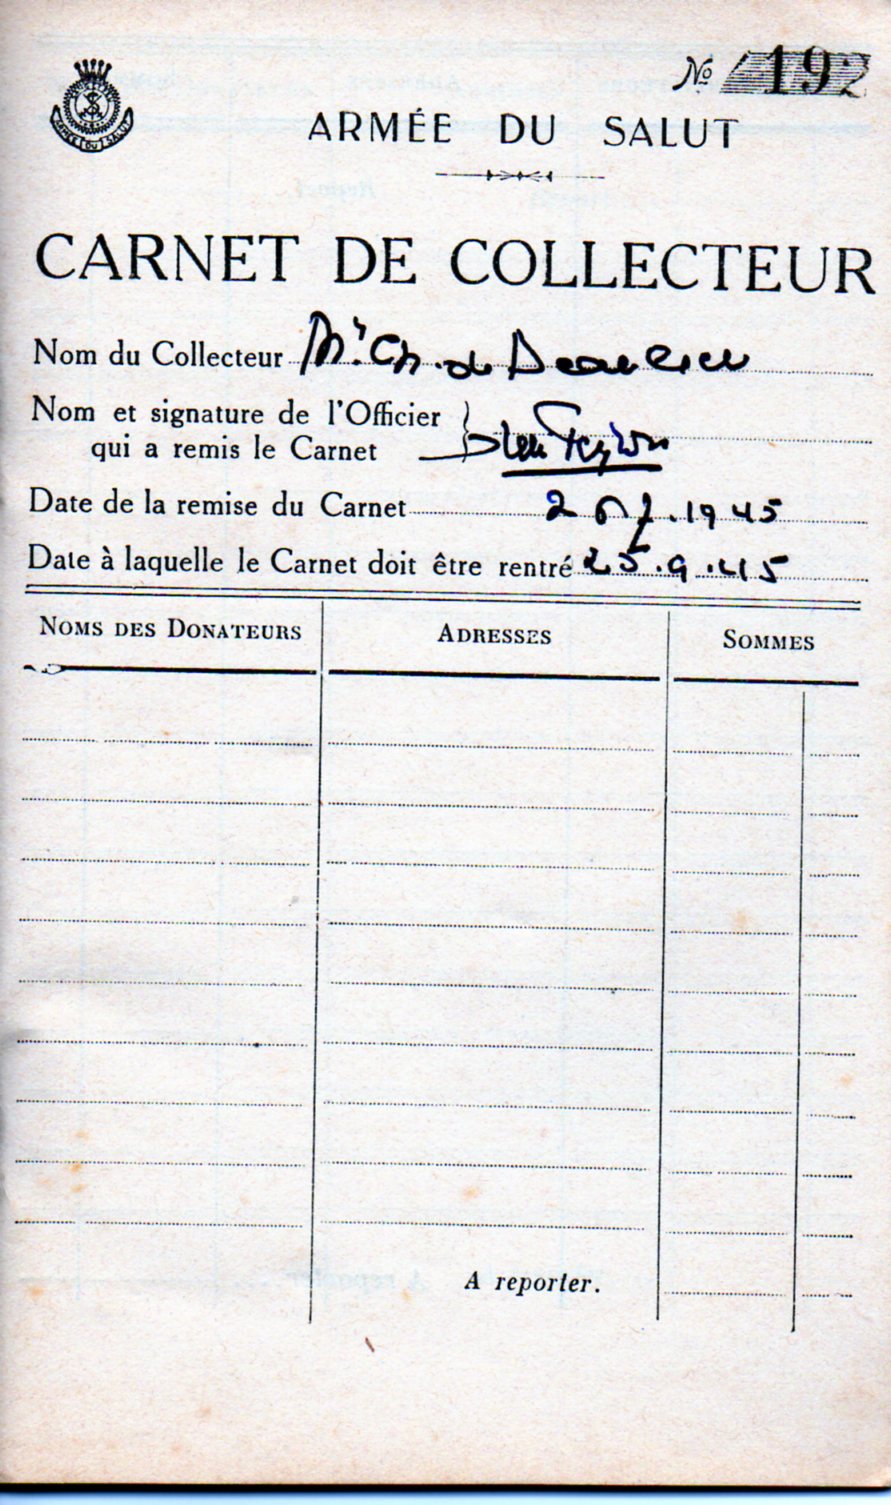 No 192
ARMÉE DU SALUT
ARMÉE DU SALUT
CARNET DE COLLECTEUR
Nom du Collecteur Mr. Ch. de
Nom et signature de l'Officier
qui a remis le Carnet
Date de la remise du Carnet 7.1945
Date à laquelle le Carnet doit être rentré 25.9.45
NOMS DES DONATEURS ADRESSES SOMMES
A reporter.